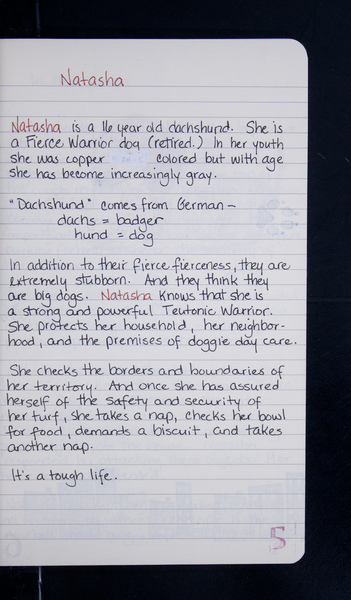 Natasha
Natasha is a 16 year old dachshund. She is
a Fierce Warrior dog (retired.) In her youth
she was copper colored but with age
she has become increasingly gray.
"Dachshund" comes from German –
dachs = badger
hund = dog
In addition to their fierce fierceness, they are
extremely stubborn. And they think they
are big dogs. Natasha knows that she is
a strong and powerful Teutonic Warrior.
She protects her household, her neighbor-
hood, and the premises of doggie day care.
She checks the borders and boundaries of
her territory. And once she has assured
herself of the safety and security of
her turf, she takes a nap, checks her bowl
for food, demands a biscuit, and takes
another nap.
It's a tough life.
5